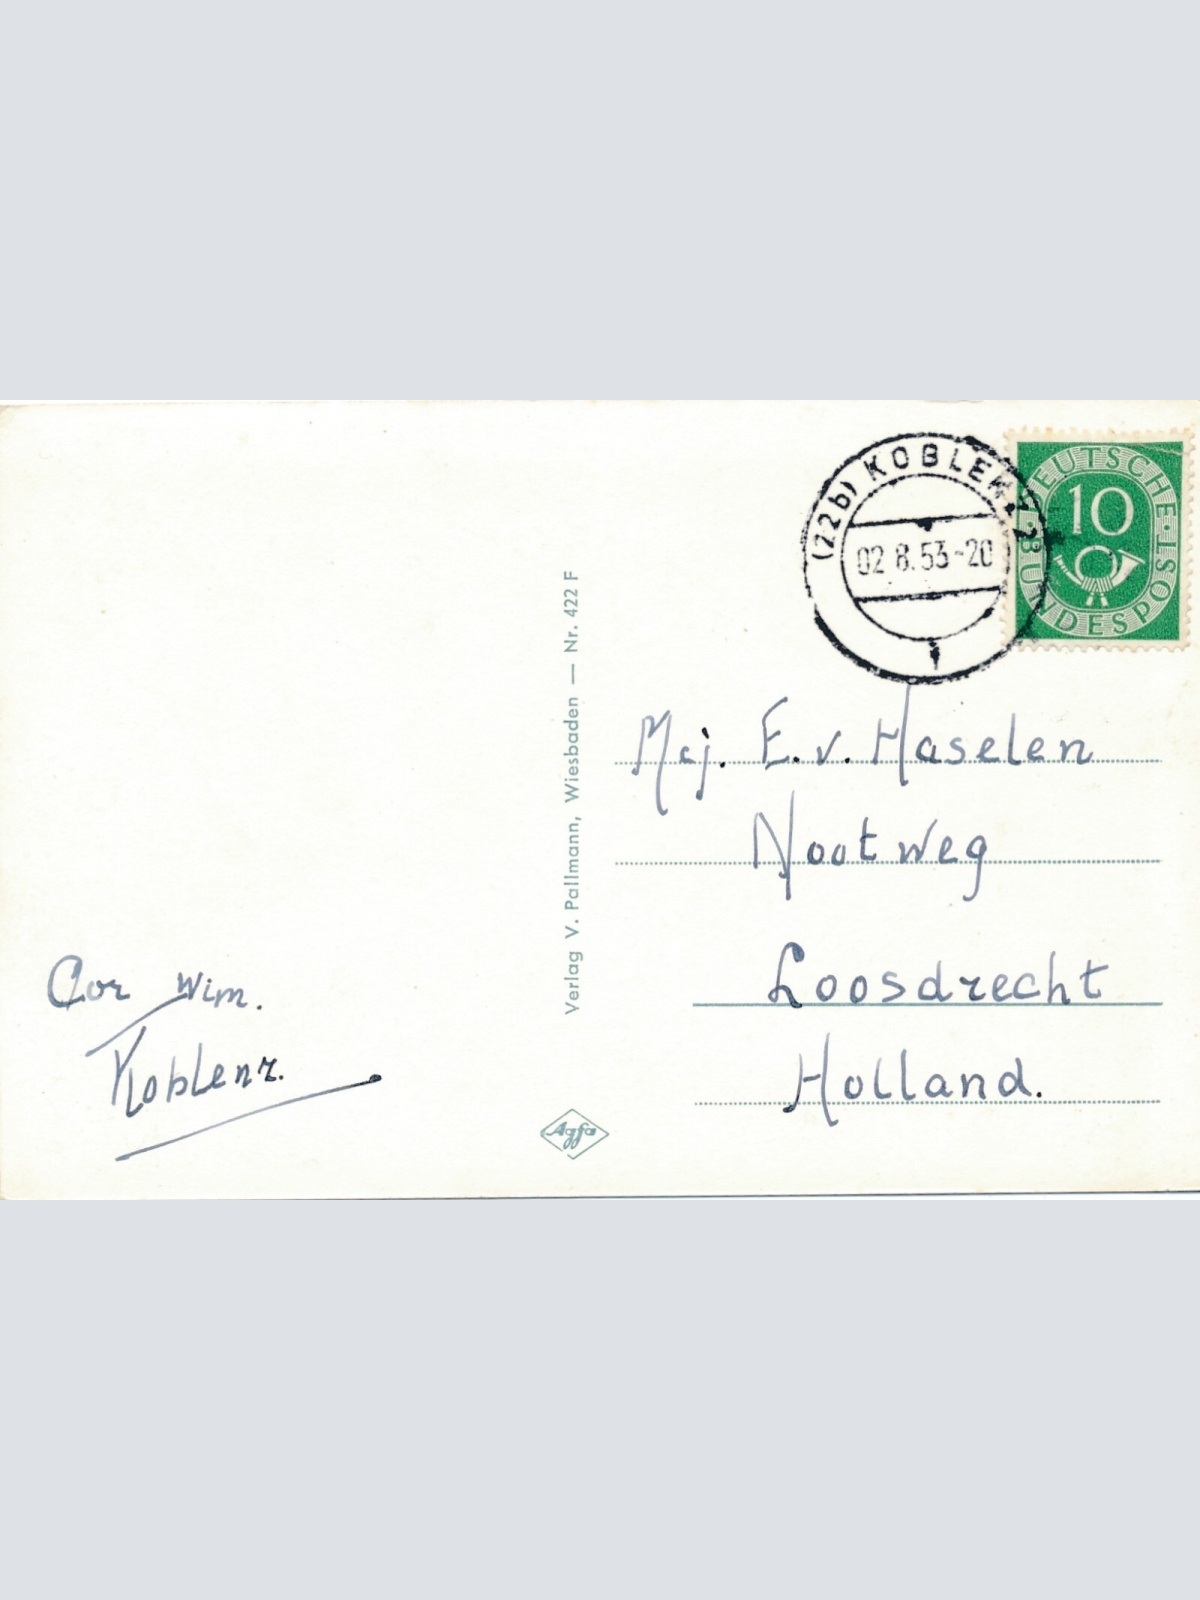 (22b) KOBLENZ 2
02.8.53-20
DEUTSCHE
10
BUNDESPOST
Mej. E. v. Haselen
Nootweg
Loosdrecht
Holland.
Cor Wim.
Koblenz.
Verlag V. Pallmann, Wiesbaden — Nr. 422 F
Agfa